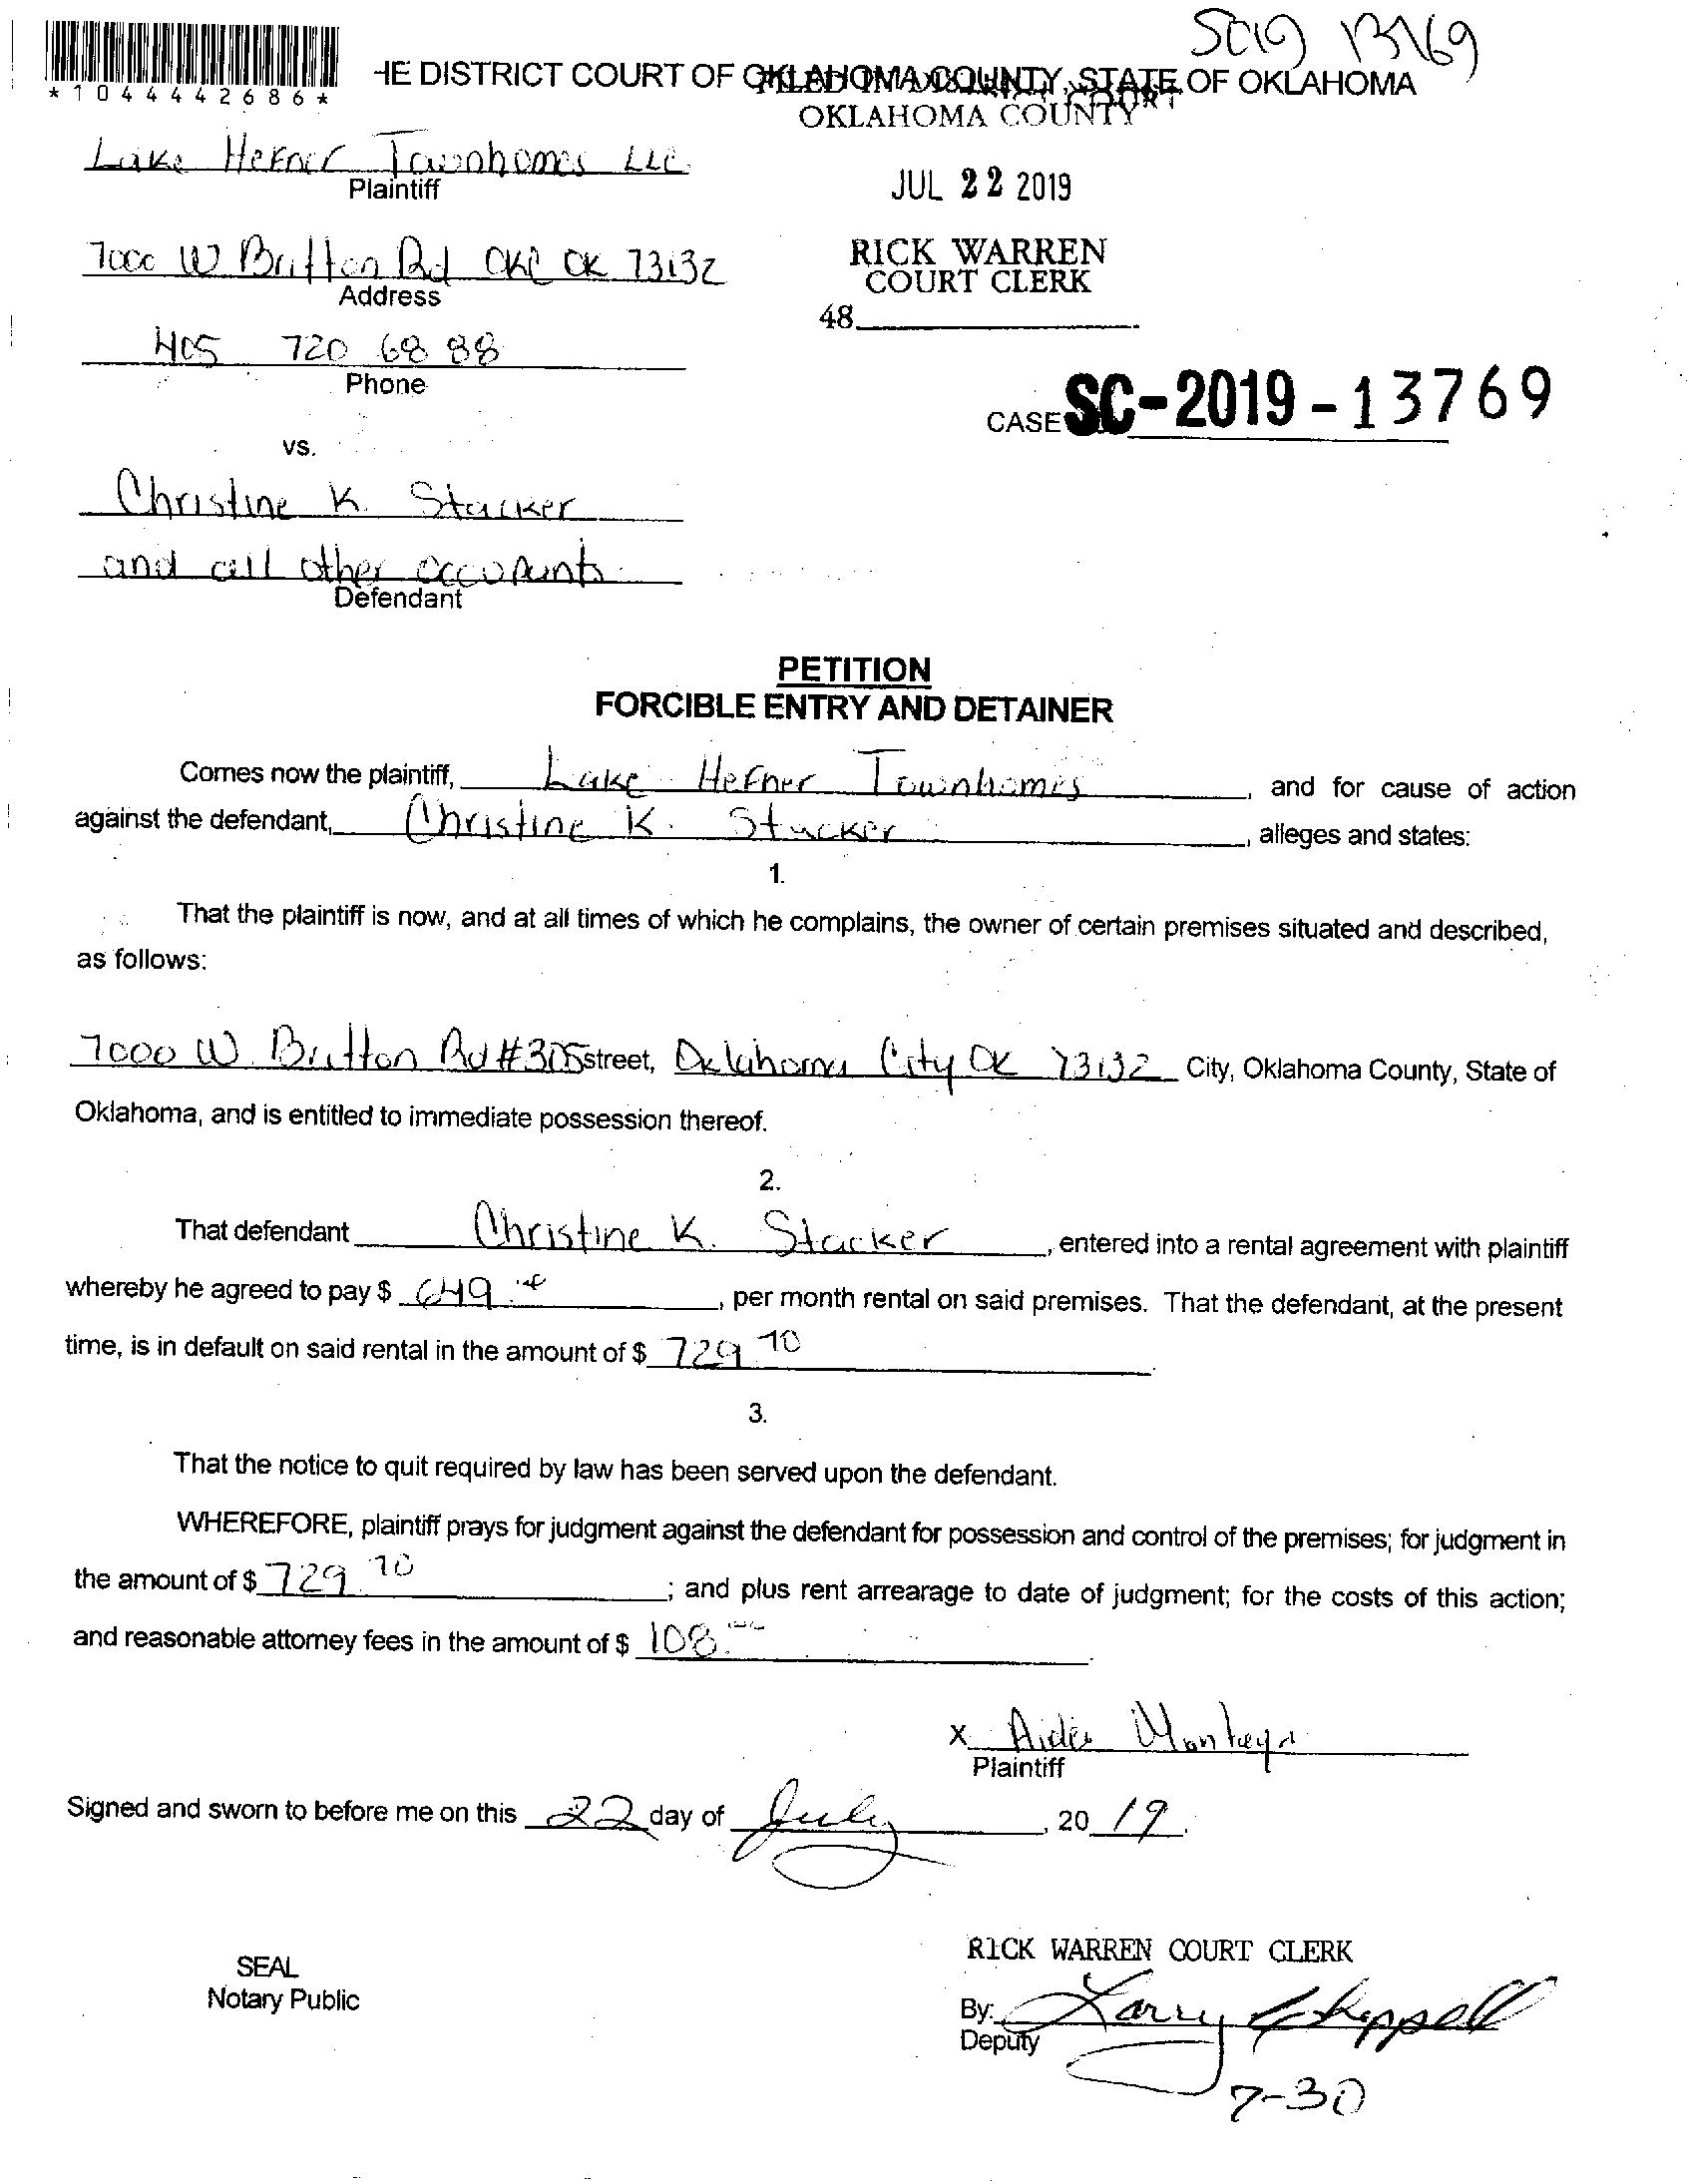 SC19 13769
*1044442686*
HE DISTRICT COURT OF OKLAHOMA COUNTY, STATE OF OKLAHOMA
FILED IN DISTRICT COURT
OKLAHOMA COUNTY
Lake Hefner Townhomes LLC.
Plaintiff
JUL 22 2019
7000 W Britton Rd OKC OK 73132
Address
RICK WARREN
COURT CLERK
48
405 720 6888
Phone
CASE SC-2019-13769
vs.
Christine K. Stacker
and all other occupants
Defendant
PETITION
FORCIBLE ENTRY AND DETAINER
Comes now the plaintiff, Lake Hefner Townhomes, and for cause of action
against the defendant, Christine K. Stacker, alleges and states:
1.
That the plaintiff is now, and at all times of which he complains, the owner of certain premises situated and described,
as follows:
7000 W. Britton Rd #305 street, Oklahoma City OK 73132 City, Oklahoma County, State of
Oklahoma, and is entitled to immediate possession thereof.
2.
That defendant Christine K. Stacker, entered into a rental agreement with plaintiff
whereby he agreed to pay $ 649, per month rental on said premises. That the defendant, at the present
time, is in default on said rental in the amount of $ 729 70
3.
That the notice to quit required by law has been served upon the defendant.
WHEREFORE, plaintiff prays for judgment against the defendant for possession and control of the premises; for judgment in
the amount of $ 729.70; and plus rent arrearage to date of judgment; for the costs of this action;
and reasonable attorney fees in the amount of $ 108.
X Aide Montoya
Plaintiff
Signed and sworn to before me on this 22 day of July, 20 19.
RICK WARREN COURT CLERK
SEAL
Notary Public
By: Larry
Deputy
7-30